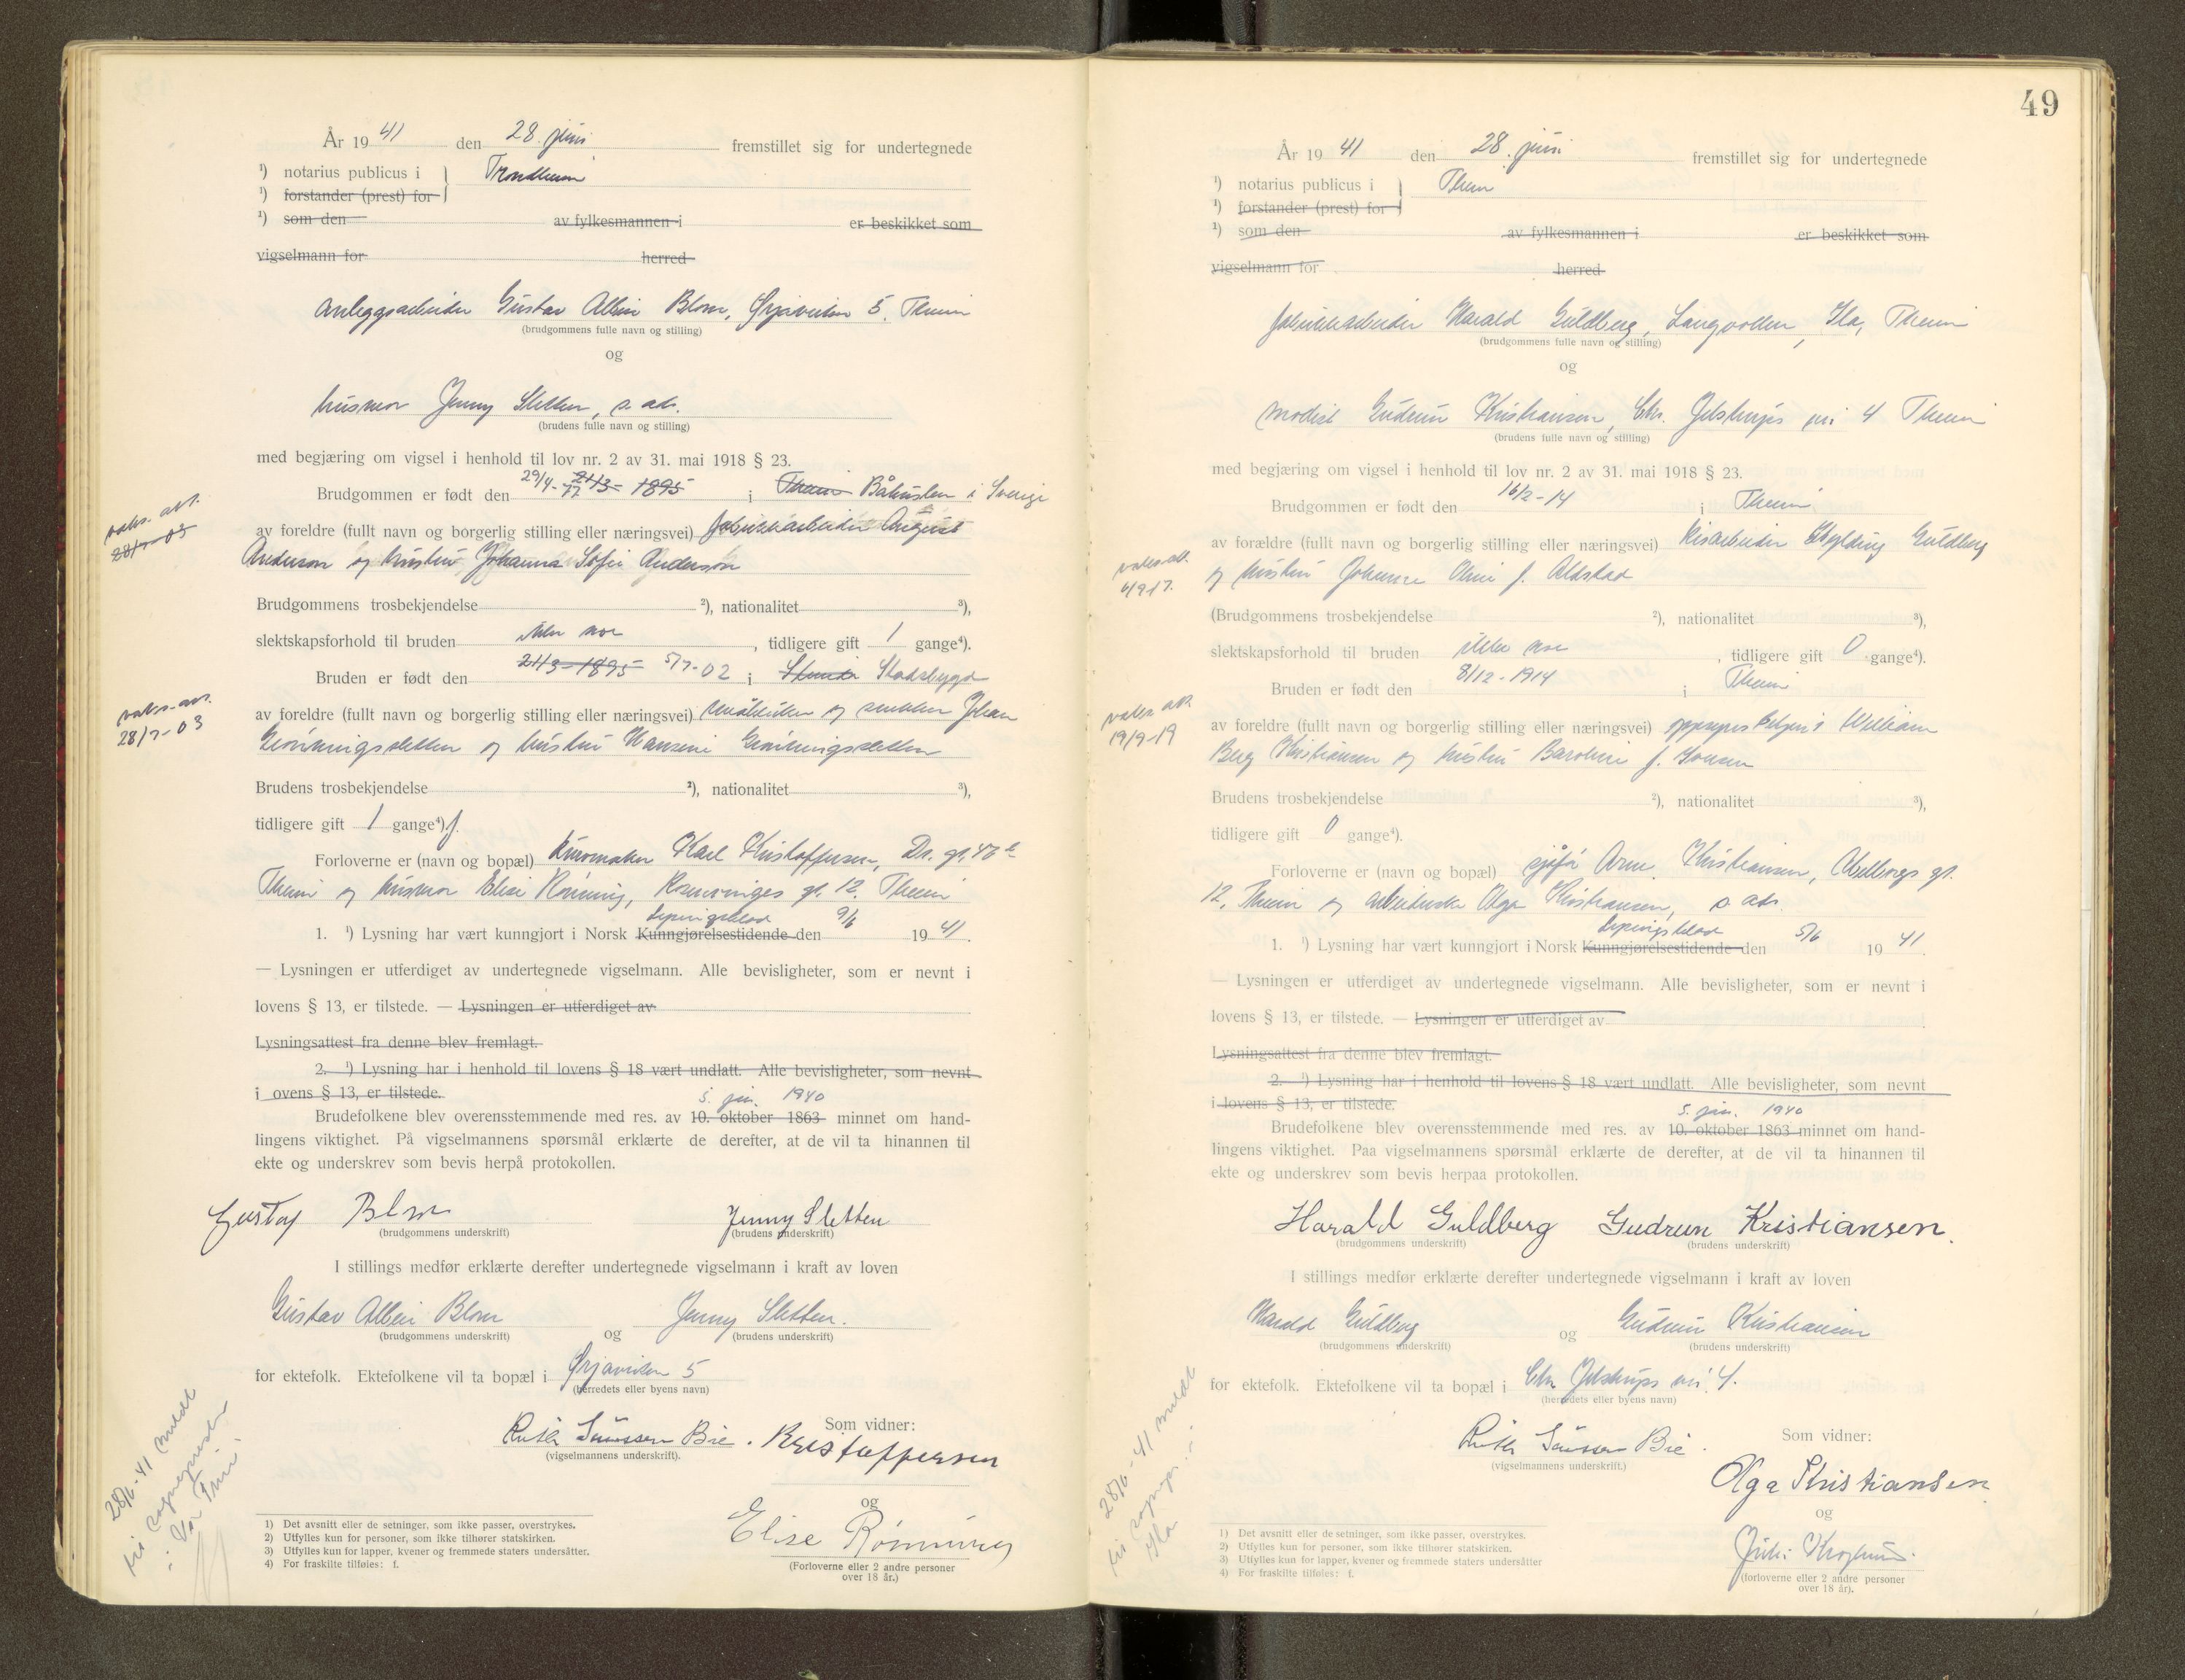 År 19 41 den 28. juni fremstillet sig for undertegnede
¹) notarius publicus i Trondheim
¹) forstander (prest) for
¹) som den av fylkesmannen i er beskikket som
vigselmann for herred
Anleggsarbeider Gustav Albin Blom, 5, Theim
(brudgommens fulle navn og stilling)
og
husmor Jenny Sletten, s. adr.
(brudens fulle navn og stilling)
med begjæring om vigsel i henhold til lov nr. 2 av 31. mai 1918 § 23.
Brudgommen er født den 29/4- 77 21/3- 1895 i Theim Båhuslen i Sverige
vaks. att.
28/7-03
av foreldre (fullt navn og borgerlig stilling eller næringsvei) fabrikkarbeider August
Anderson og hustru Johanna Sofie Anderson
Brudgommens trosbekjendelse ²), nationalitet ³),
slektskapsforhold til bruden ikke noe, tidligere gift 1 gange⁴).
Bruden er født den 21/3-1895 5/7-02 i Stadsbygd
vaks. att.
28/7-03
av foreldre (fullt navn og borgerlig stilling eller næringsvei) småbruker og snekker Johan
og hustru Hansine
Brudens trosbekjendelse ²), nationalitet ³),
tidligere gift 1 gange⁴) f.
Forloverne er (navn og bopæl) Karl Kristoffersen,
Theim og husmor Elise Rönning, gt. 12. Theim
Lysningsblad
1. ¹) Lysning har vært kunngjort i Norsk Kunngjørelsestidende den 9/6 19 41.
— Lysningen er utferdiget av undertegnede vigselmann. Alle bevisligheter, som er nevnt i
lovens § 13, er tilstede. — Lysningen er utferdiget av
Lysningsattest fra denne blev fremlagt.
2. ¹) Lysning har i henhold til lovens § 18 vært undlatt. Alle bevisligheter, som nevnt
i ovens § 13, er tilstede.
5. jan. 1940
Brudefolkene blev overensstemmende med res. av 10. oktober 1863 minnet om hand-
lingens viktighet. På vigselmannens spørsmål erklærte de derefter, at de vil ta hinannen til
ekte og underskrev som bevis herpå protokollen.
Gustaf Blom Jenny Sletten
(brudgommens underskrift) (brudens underskrift)
I stillings medfør erklærte derefter undertegnede vigselmann i kraft av loven
Gustav Albin Blom og Jenny Sletten.
(brudgommens underskrift) (brudens underskrift)
for ektefolk. Ektefolkene vil ta bopæl i 5
(herredets eller byens navn)
Som vidner:
Ruth Bie. Kristoffersen
(vigselmannens underskrift).
og
Elise Rönning
(Forloverne eller 2 andre personer
over 18 år.)
28/6-41 meldt
til sogneprest
1) Det avsnitt eller de setninger, som ikke passer, overstrykes.
2) Utfylles kun for personer, som ikke tilhører statskirken.
3) Utfylles kun for lapper, kvener og fremmede staters undersåtter.
4) For fraskilte tilføies: f.
49
År 19 41 den 28. juni fremstillet sig for undertegnede
¹) notarius publicus i Theim
¹) forstander (prest) for
¹) som den av fylkesmannen i er beskikket som
vigselmann for herred
fabrikkarbeider Harald Guldberg, Langvollen, Ila, Theim
(brudgommens fulle navn og stilling)
og
modist Gudrun Kristiansen, Chr. Jelstrups vei 4 Theim
(brudens fulle navn og stilling)
med begjæring om vigsel i henhold til lov nr. 2 av 31. mai 1918 § 23.
Brudgommen er født den 16/2-14 i Theim
av forældre (fullt navn og borgerlig stilling eller næringsvei) Guldberg
og hustru f. Aldstad
Brudgommens trosbekjendelse ²), nationalitet ³),
slektskapsforhold til bruden ikke noe, tidligere gift 0 gange⁴).
Bruden er født den 8/12-1914 i Theim
vaks. att.
19/9-19
av foreldre (fullt navn og borgerlig stilling eller næringsvei) William
Berg Kristiansen og hustru f.
Brudens trosbekjendelse ²), nationalitet ³),
tidligere gift 0 gange⁴).
Forloverne er (navn og bopæl) sjåfør Arne Kristiansen, gt.
12, Theim og Olga Kristiansen, s. adr.
Lysningsblad
1. ¹) Lysning har vært kunngjort i Norsk Kunngjørelsestidende den 5/6 19 41.
— Lysningen er utferdiget av undertegnede vigselmann. Alle bevisligheter, som er nevnt i
lovens § 13, er tilstede. — Lysningen er utferdiget av
Lysningsattest fra denne blev fremlagt.
2. ¹) Lysning har i henhold til lovens § 18 vært undlatt. Alle bevisligheter, som nevnt
i lovens § 13, er tilstede.
5. jan. 1940
Brudefolkene blev overensstemmende med res. av 10. oktober 1863 minnet om hand-
lingens viktighet. Paa vigselmannens spørsmål erklærte de derefter, at de vil ta hinannen til
ekte og underskrev som bevis herpaa protokollen.
Harald Guldberg Gudrun Kristiansen.
(brudgommens underskrift) (brudens underskrift)
I stillings medfør erklærte derefter undertegnede vigselmann i kraft av loven
Harald Guldberg og Gudrun Kristiansen
(brudgommens underskrift) (brudens underskrift)
for ektefolk. Ektefolkene vil ta bopæl i Chr. Jelstrups vei 4.
(herredets eller byens navn)
Som vidner:
Ruth Bie.
(vigselmannens underskrift.)
Olga Kristiansen
og
(forloverne eller 2 andre personer
over 18 år).
28/6-41 meldt
til
Ila
1) Det avsnitt eller de setninger, som ikke passer, overstrykes.
2) Utfylles kun for personer, som ikke tilhører statskirken.
3) Utfylles kun for lapper, kvener og fremmede staters undersåtter
4) For fraskilte tilføies: f.